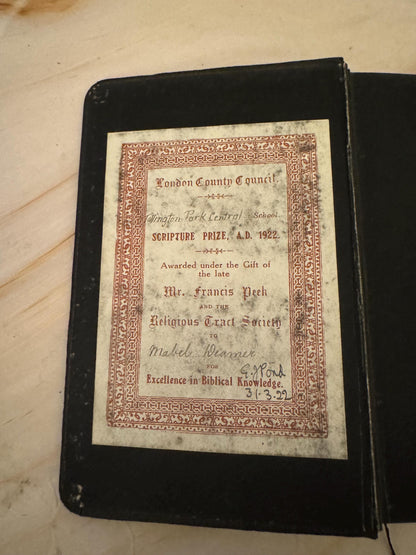 London County Council.
Park Central School
SCRIPTURE PRIZE, A.D. 1922.
Awarded under the Gift of
the late
Mr. Francis Peek
AND THE
Religious Tract Society
TO
Mabel Deamer
FOR
Excellence in Biblical Knowledge.
31.3.22